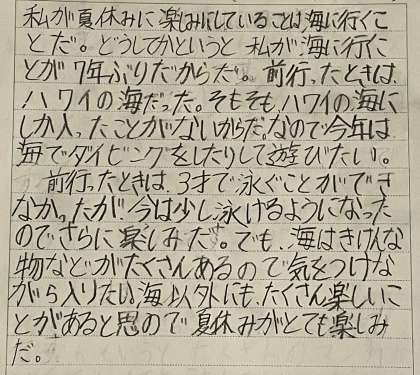 私が夏休みに楽しみにしていることは海に行くこ
とだ。どうしてかというと私が海に行くこ
とが7年ぶりだからだ。前行ったときは、
ハワイの海だった。そもそも、ハワイの海に
しか入ったことがないからだ。なので今年は
海でダイビングをしたりして遊びたい。
前行ったときは、3才で泳ぐことができ
なかったが、今は少し泳けるようになった
のでさらに楽しみだ。でも、海はきけんな
物などがたくさんあるので気をつけな
がら入りたい。海以外にも、たくさん楽しいこ
とがあると思ので夏休みがとても楽しみ
だ。